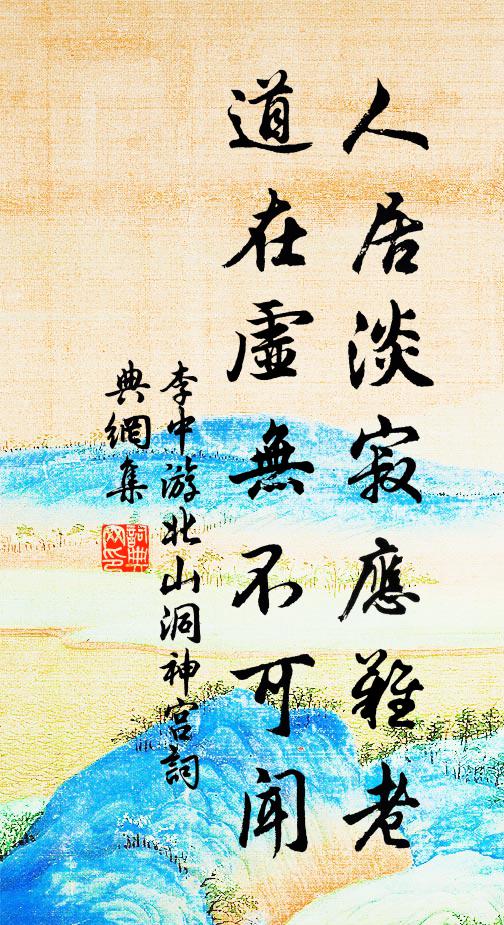 人居淡寂應難老
道在虛無不可聞
李中游北山洞神宮詞
典網集
詞典